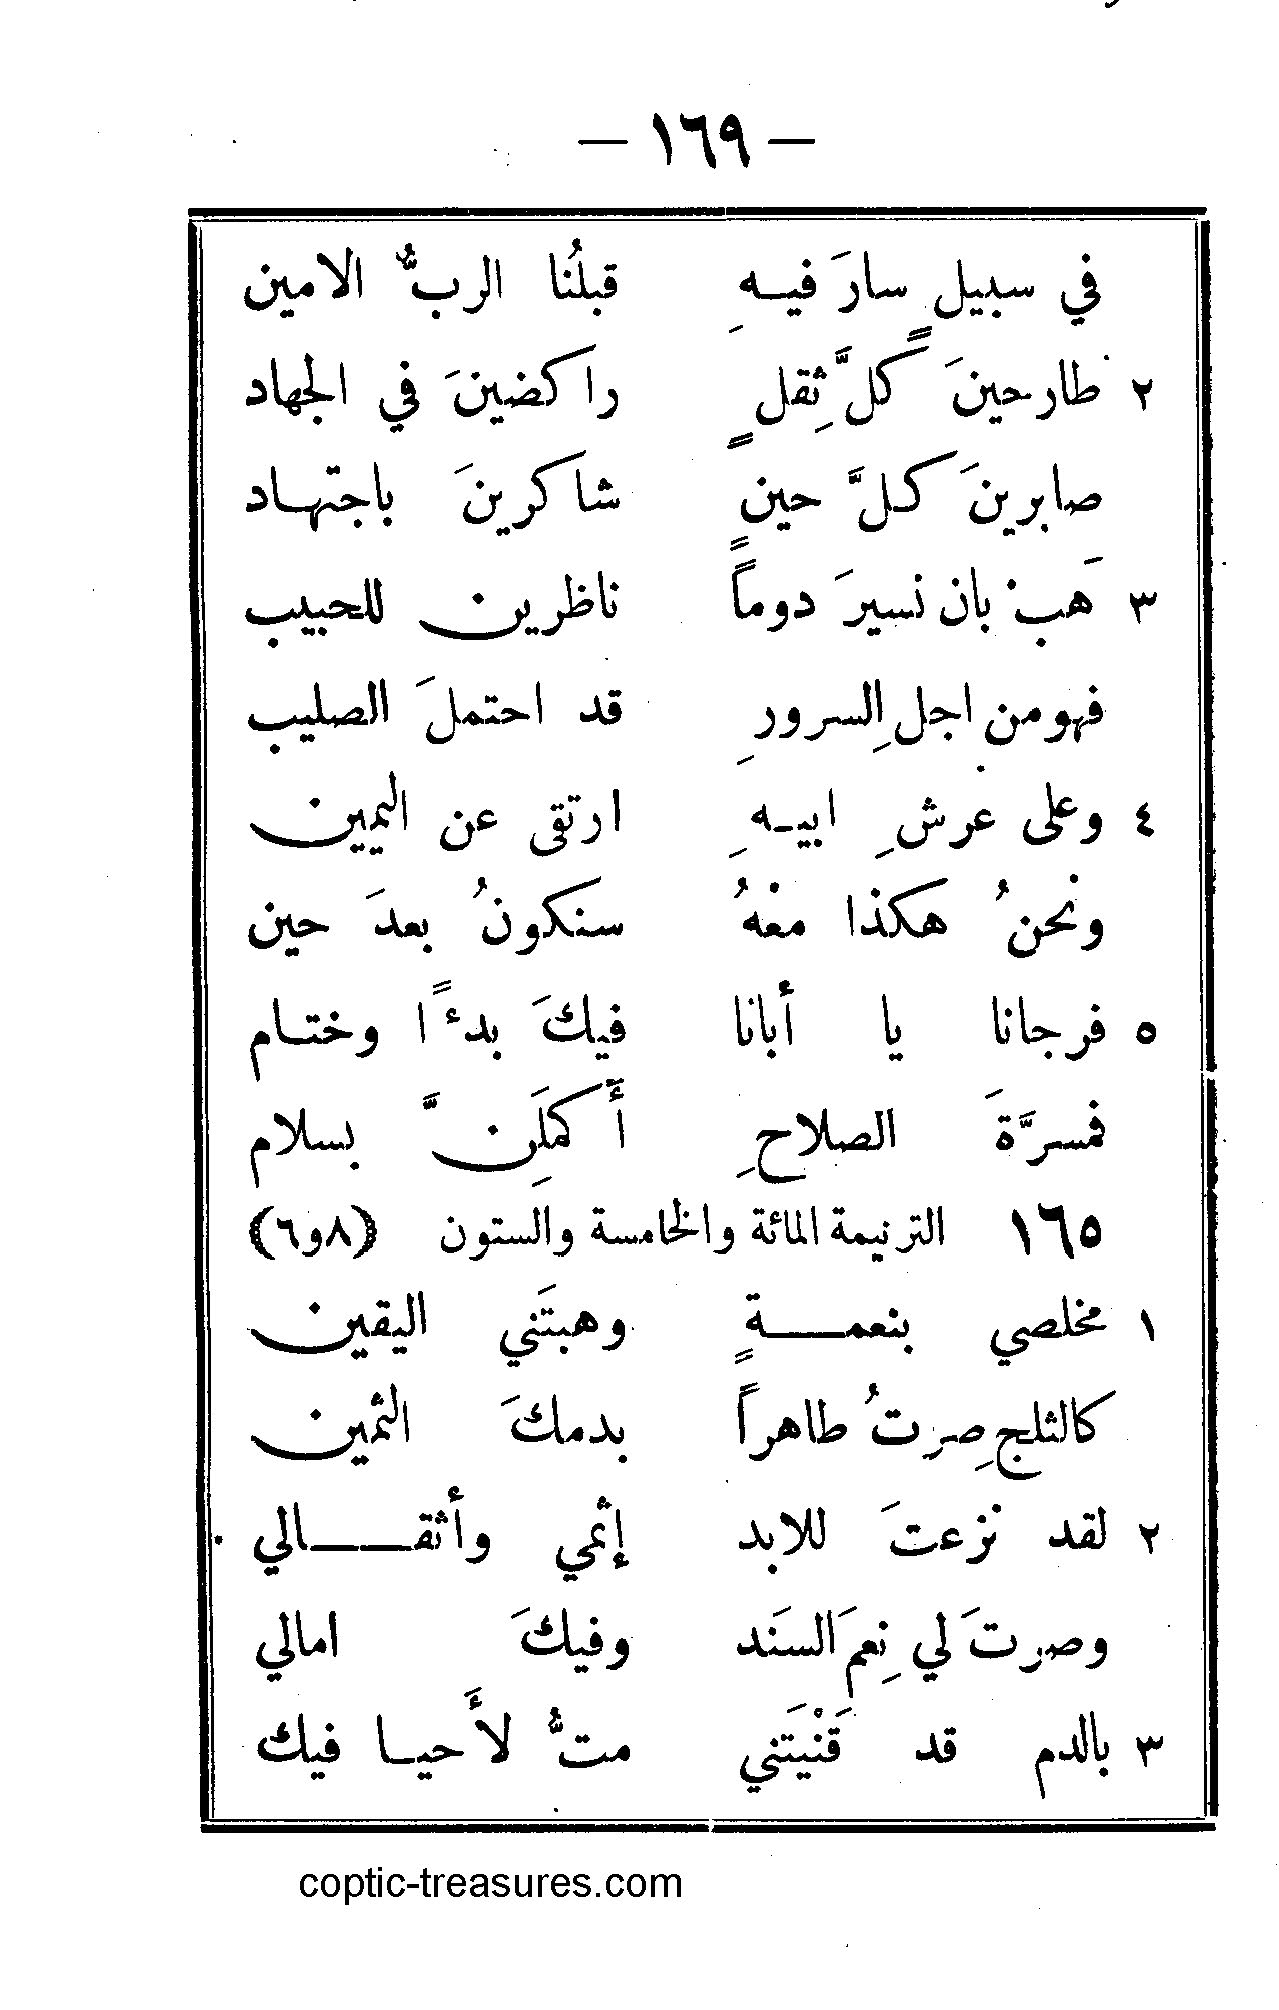 — ١٦٩ —
في سبيلٍ سارَ فيهِ قبلُنا الربُّ الامين
٢ طارحينَ كلَّ ثِقلٍ راكضينَ في الجهاد
صابرينَ كلَّ حينٍ شاكرينَ باجتهاد
٣ هَب بان نسيرَ دوماً ناظرين للحبيب
فهو من اجلِ السرورِ قد احتملَ الصليب
٤ وعلى عرشِ ابيهِ ارتقى عن اليمين
ونحنُ هكذا معْهُ سنكونُ بعدَ حين
٥ فرجانا يا أبانا فيكَ بدءًا وختام
فمسرَّةَ الصلاحِ أَكمِلَنَّ بسلام
١٦٥ الترنيمة المائة والخامسة والستون (٨و٦)
١ مخلصي بنعمةٍ وهبتَني اليقين
كالثلجِ صِرتُ طاهراً بدمكَ الثمين
٢ لقد نزعتَ للابد إثمي وأثقالي
وصرتَ لي نِعمَ السنَد وفيكَ امالي
٣ بالدم قد قَنْيَتني متُّ لأَحيا فيك
coptic-treasures.com